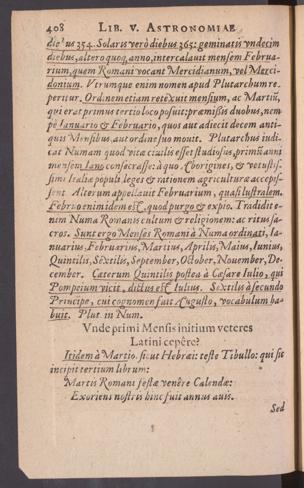 408 LIB. V. ASTRONOMIAE
diebus 354. Solaris verò diebus 365: geminatis vndecim
diebus, altero quoq; anno, intercalauit mensem Februa-
rium, quem Romani vocant Mercidianum, vel Merci-
donium. Vtrumque enim nomen apud Plutarchum re-
peritur. Ordinem etiam retexuit mensium, ac Martiũ,
qui erat primus tertio loco posuit: præmissis duobus, nem
pè Ianuario & Februario, quos aut adiecit decem anti-
quis Mensibus aut ordine suo mouit. Plutarchus iudi-
cat Numam quod vitæ ciuilis esset studiosus, primũ anni
mensem Iano consecrasse: à quo Aborigines, & vetustis-
simi Italiæ populi leges & rationem agriculturæ accepis-
sent. Alterum appellauit Februarium, quasi lustralem.
Februo enim idem est, quod purgo & expio. Tradidit e-
nim Numa Romanis cultum & religionem: ac ritus sa-
cros. Sunt ergo Menses Romani à Numa ordinati, Ia-
nuarius, Februarius, Martius, Aprilis, Maius, Iunius,
Quintilis, Sextilis, September, October, Nouember, De-
cember. Cæterum Quintilis postea à Cæsare Iulio, qui
Pompeium vicit, dictus est Iulius. Sextilis à secundo
Principe, cui cognomen fuit Augusto, vocabulum ha-
buit. Plut. in Num.
Vnde primi Mensis initium veteres
Latini cepêre?
Itidem à Martio. sicut Hebræi: teste Tibullo: qui sic
incipit tertium librum:
Martis Romani festæ venêre Calendæ:
Exoriens nostris hinc fuit annus auis.
Sed